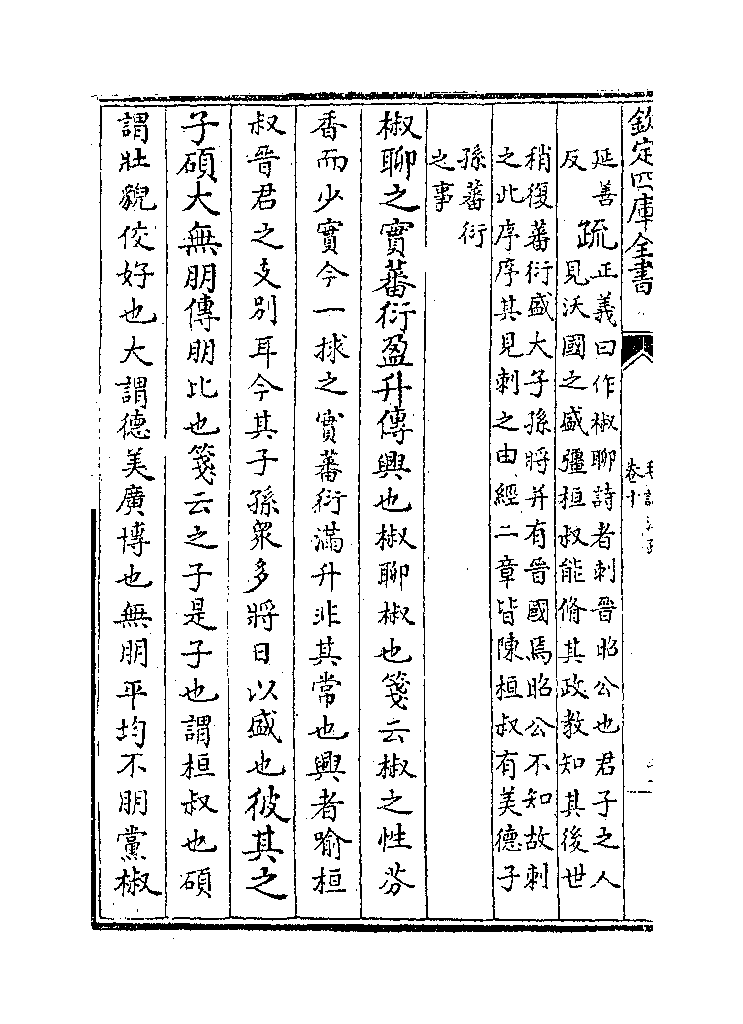 欽定四庫全書
卷十
延善
反
疏
正義曰作椒聊詩者刺晉昭公也君子之人
見沃國之盛彊桓叔能脩其政教知其後世
稍復蕃衍盛大子孫將并有晉國焉昭公不知故刺
之此序序其見刺之由經二章皆陳桓叔有美德子
孫蕃衍
之事
椒聊之實蕃衍盈升傳興也椒聊椒也箋云椒之性芬
香而少實今一捄之實蕃衍滿升非其常也興者喻桓
叔晉君之支別耳今其子孫衆多將日以盛也彼其之
子碩大無朋傳朋比也箋云之子是子也謂桓叔也碩
謂壯貌佼好也大謂德美廣博也無朋平均不朋黨椒